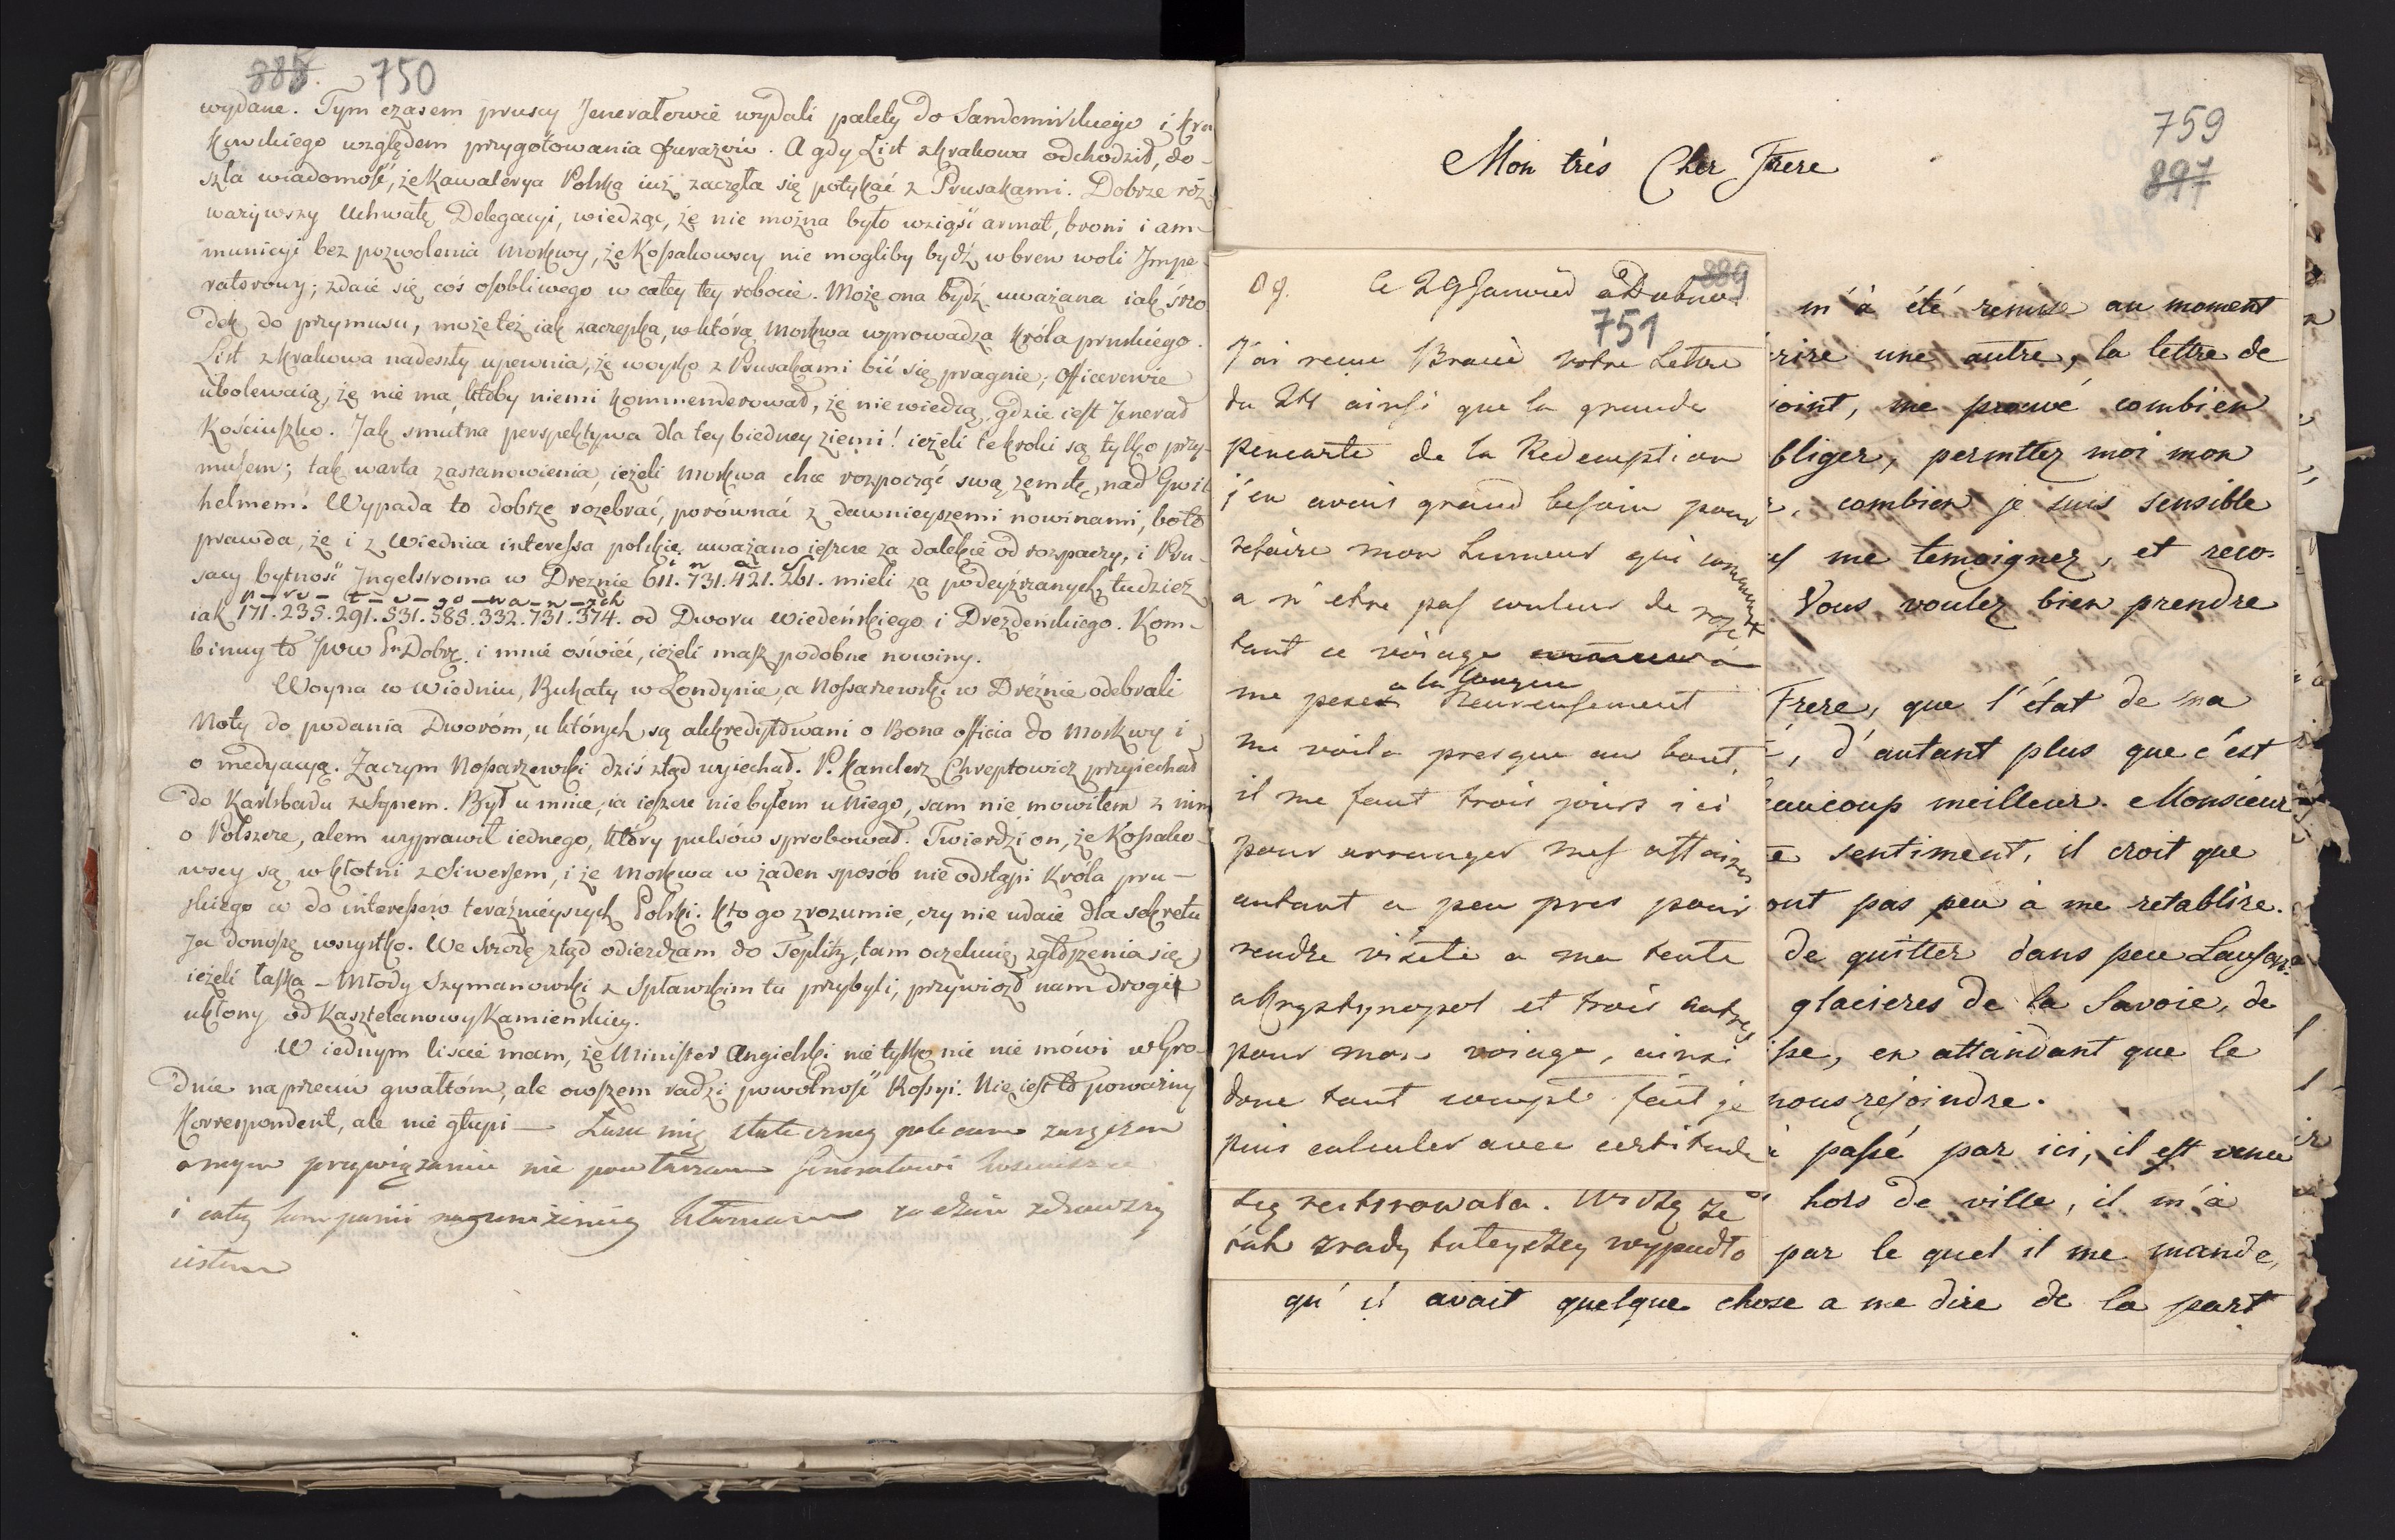 885. 750
wydane. Tym czasem pruscy Jenerałowie wypali palety do Sandomirskiego i Kra
kowskiego względem przygotowania furażów. A gdy List z Krakowa odchodził, do-
szła wiadomość, że Kawalerya Polska iuż zaczęła się potykać z Prusakami. Dobrze roz
ważywszy Uchwałę Delegacyi, wiedząc, że nie można było wziąść armat, broni i am-
municyi bez pozwolenia Moskwy, że Kossakowscy nie mogliby bydź wbrew woli Impe
ratorowy; zdaie się coś osobliwego w całey tey robocie. Może ona bydź uważana iak śrzo
dek do przymusu, może też iak zaczepka, w którą Moskwa wprowadza Króla pruskiego.
List z Krakowa nadeszły upewnia, że woysko z Prusakami bić się pragnie; Officerowie
ubolewaią, że nie ma, ktoby niemi kommenderował, że nie wiedzą, gdzie iest Jenerał
Kościuszko. Jak smutna perspektywa dla tey biedney ziemi! ieżeli te kroki są tylko przy-
musem; tak warta zastanowienia, ieżeli Moskwa chce rozpocząć swą zemstę nad Gwil
helmem. Wypada to dobrze rozebrać, porównać z dawnieyszemi nowinami, bo to
prawda, że i z Wiednia interessa polskie uważano ieszcze za dalekie od rozpaczy, i Pru-
sacy bytność Ingelstroma w Dreznie 611. 731. 421. 261. mieli za podeyźrzanych, tudzież
iak 171. 235. 291. 531. 585. 332. 731. 374. od Dworu Wiedeńskiego i Drezdenskiego. Kom-
binuy to Jww Pn Dobrz. i mnie oświeć, ieżeli masz podobne nowiny.
Woyna w Wiedniu, Bukaty w Londynie, a Nossarzewski w Dreźnie odebrali
Noty do podania Dworóm, u których są akkredytowani o Bona officia do Moskwy i
o medyacyą. Zaczym Nossarzewski dziś ztąd wyiechał. P. Kanclerz Chreptowicz przyiechał
do Karlsbadu z synem. Był u mnie, ia ieszcze nie byłem u Niego, sam nie mowiłem z nim
o Polszcze, alem wyprawił iednego, który pulsów sprobował. Twierdzi on, że Kossako-
wscy są w kłotni z Siwersem, i że Moskwa w żaden sposób nie odstąpi Króla pru-
skiego co do interessów teraźnieyszych Polski. Kto go zrozumie, czy nie udaie dla sekretu
Ja donoszę wszystko. We Srzodę ztąd odiezdzam do Toplitz, tam oczekuię zgłoszenia się
ieżeli łaska - Młody Szymanowski z Spławskim tu przybyli; przywiozł nam drogie
ukłony od Kasztelanowy Kamienskiey.
W iednym liście mam, że Minister Angielski nie tylko nic nie mówi w Gro-
dnie naprzeciw gwałtóm, ale owszem radzi powolność Rossyi. Nie iest to poważny
Korrespondent, ale nie głupi —
przywiązaniu nie
i całey
Mon très Cher Frere
759
897
889
ce 29 Janvier a Dubno
751
J'ai reçue votre Lettre
du 24 ainsi que la grande
pencarte de la Redemption
j'en avais grand besoin pour
refaire mon humeur qui commence
a n'etre pas couleur de rose
tant ce voiage
a la longue
me pese Heureusement
me voila presque au bout,
il me faut trois jours ici
pour arranger mes affaires
autant a peu pres pour
rendre visite a ma tente
a Krystynopol et trois autres
pour mon voiage, ainsi
donc tout compté fait je
puis calculer avec certitude
się restirowała. Widzę że
iak zrady tuteyszey wypadło
m'à été remise au moment
rire une autre, la lettre de
joint, me prouve combien
bliger, permttez moi mon
combien je suis sensible
me temoignez, et reco-
Vous voulez bien prendre
Frere, que l'état de ma
, d'autant plus que c'est
eaucoup meilleur. Monsieur
e sentiment, il croit que
ont pas peu à me retablire.
de quitter dans peu Lausan.
glacieres de la Savoie, de
sse, en attandant que le
nous rejoindre.
passé par ici, il est venu
hors de ville, il m'à
par le quel il me mande,
qu'il avait quelque chose a me dire de la part